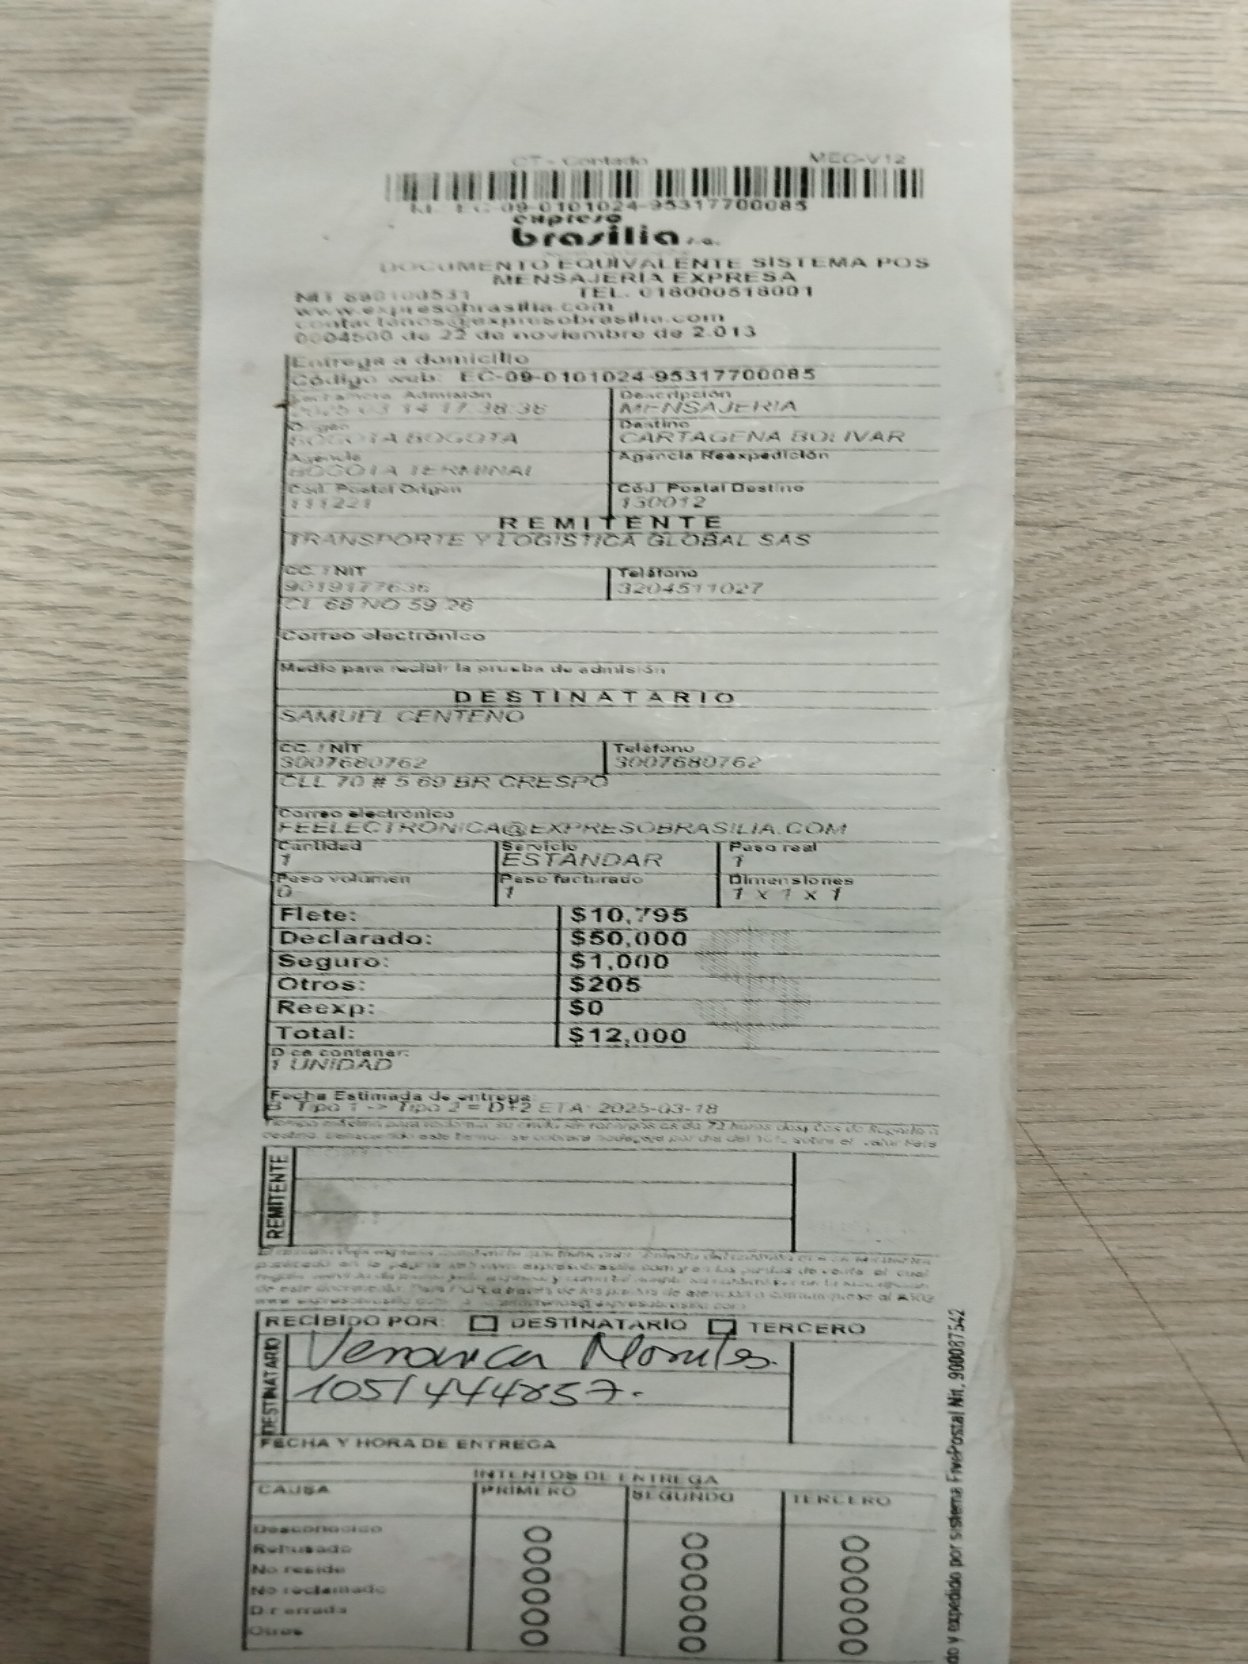 CT - Contado MEC-V12
EC-09-0101024-95317700085
expreso
brasilia s.a.
DOCUMENTO EQUIVALENTE SISTEMA POS
MENSAJERIA EXPRESA
NIT 890100531 TEL. 018000518001
www.expresobrasilia.com
contactenos@expresobrasilia.com
0004500 de 22 de noviembre de 2.013
Entrega a domicilio
Código web: EC-09-0101024-95317700085
Admisión Descripción
2025-03-14 17:38:36 MENSAJERIA
Origen Destino
BOGOTA BOGOTA CARTAGENA BOLIVAR
Agencia Agencia Reexpedición
BOGOTA TERMINAL
Cód. Postal Origen Cód. Postal Destino
111221 130012
REMITENTE
TRANSPORTE Y LOGISTICA GLOBAL SAS
CC. / NIT Teléfono
9019177636 3204511027
CL 68 NO 59 26
Correo electrónico
Medio para recibir la prueba de admisión
DESTINATARIO
SAMUEL CENTENO
CC. / NIT Teléfono
3007680762 3007680762
CLL 70 # 5 69 BR CRESPO
Correo electrónico
FEELECTRONICA@EXPRESOBRASILIA.COM
Cantidad Servicio Peso real
1 ESTANDAR 1
Peso volumen Peso facturado Dimensiones
0 1 1 x 1 x 1
Flete: $10,795
Declarado: $50,000
Seguro: $1,000
Otros: $205
Reexp: $0
Total: $12,000
Dice contener:
1 UNIDAD
Fecha Estimada de entrega
B Tipo 1 -> Tipo 2 = D+2 ETA: 2025-03-18
REMITENTE
RECIBIDO POR: DESTINATARIO TERCERO
DESTINATARIO
Veronica Morales.
1051444857.
FECHA Y HORA DE ENTREGA
INTENTOS DE ENTREGA
CAUSA PRIMERO SEGUNDO TERCERO
Desconocido
Rehusado
No reside
No reclamado
Dir errada
Otros
do y expedido por sistema FivePostal Nit. 900087542